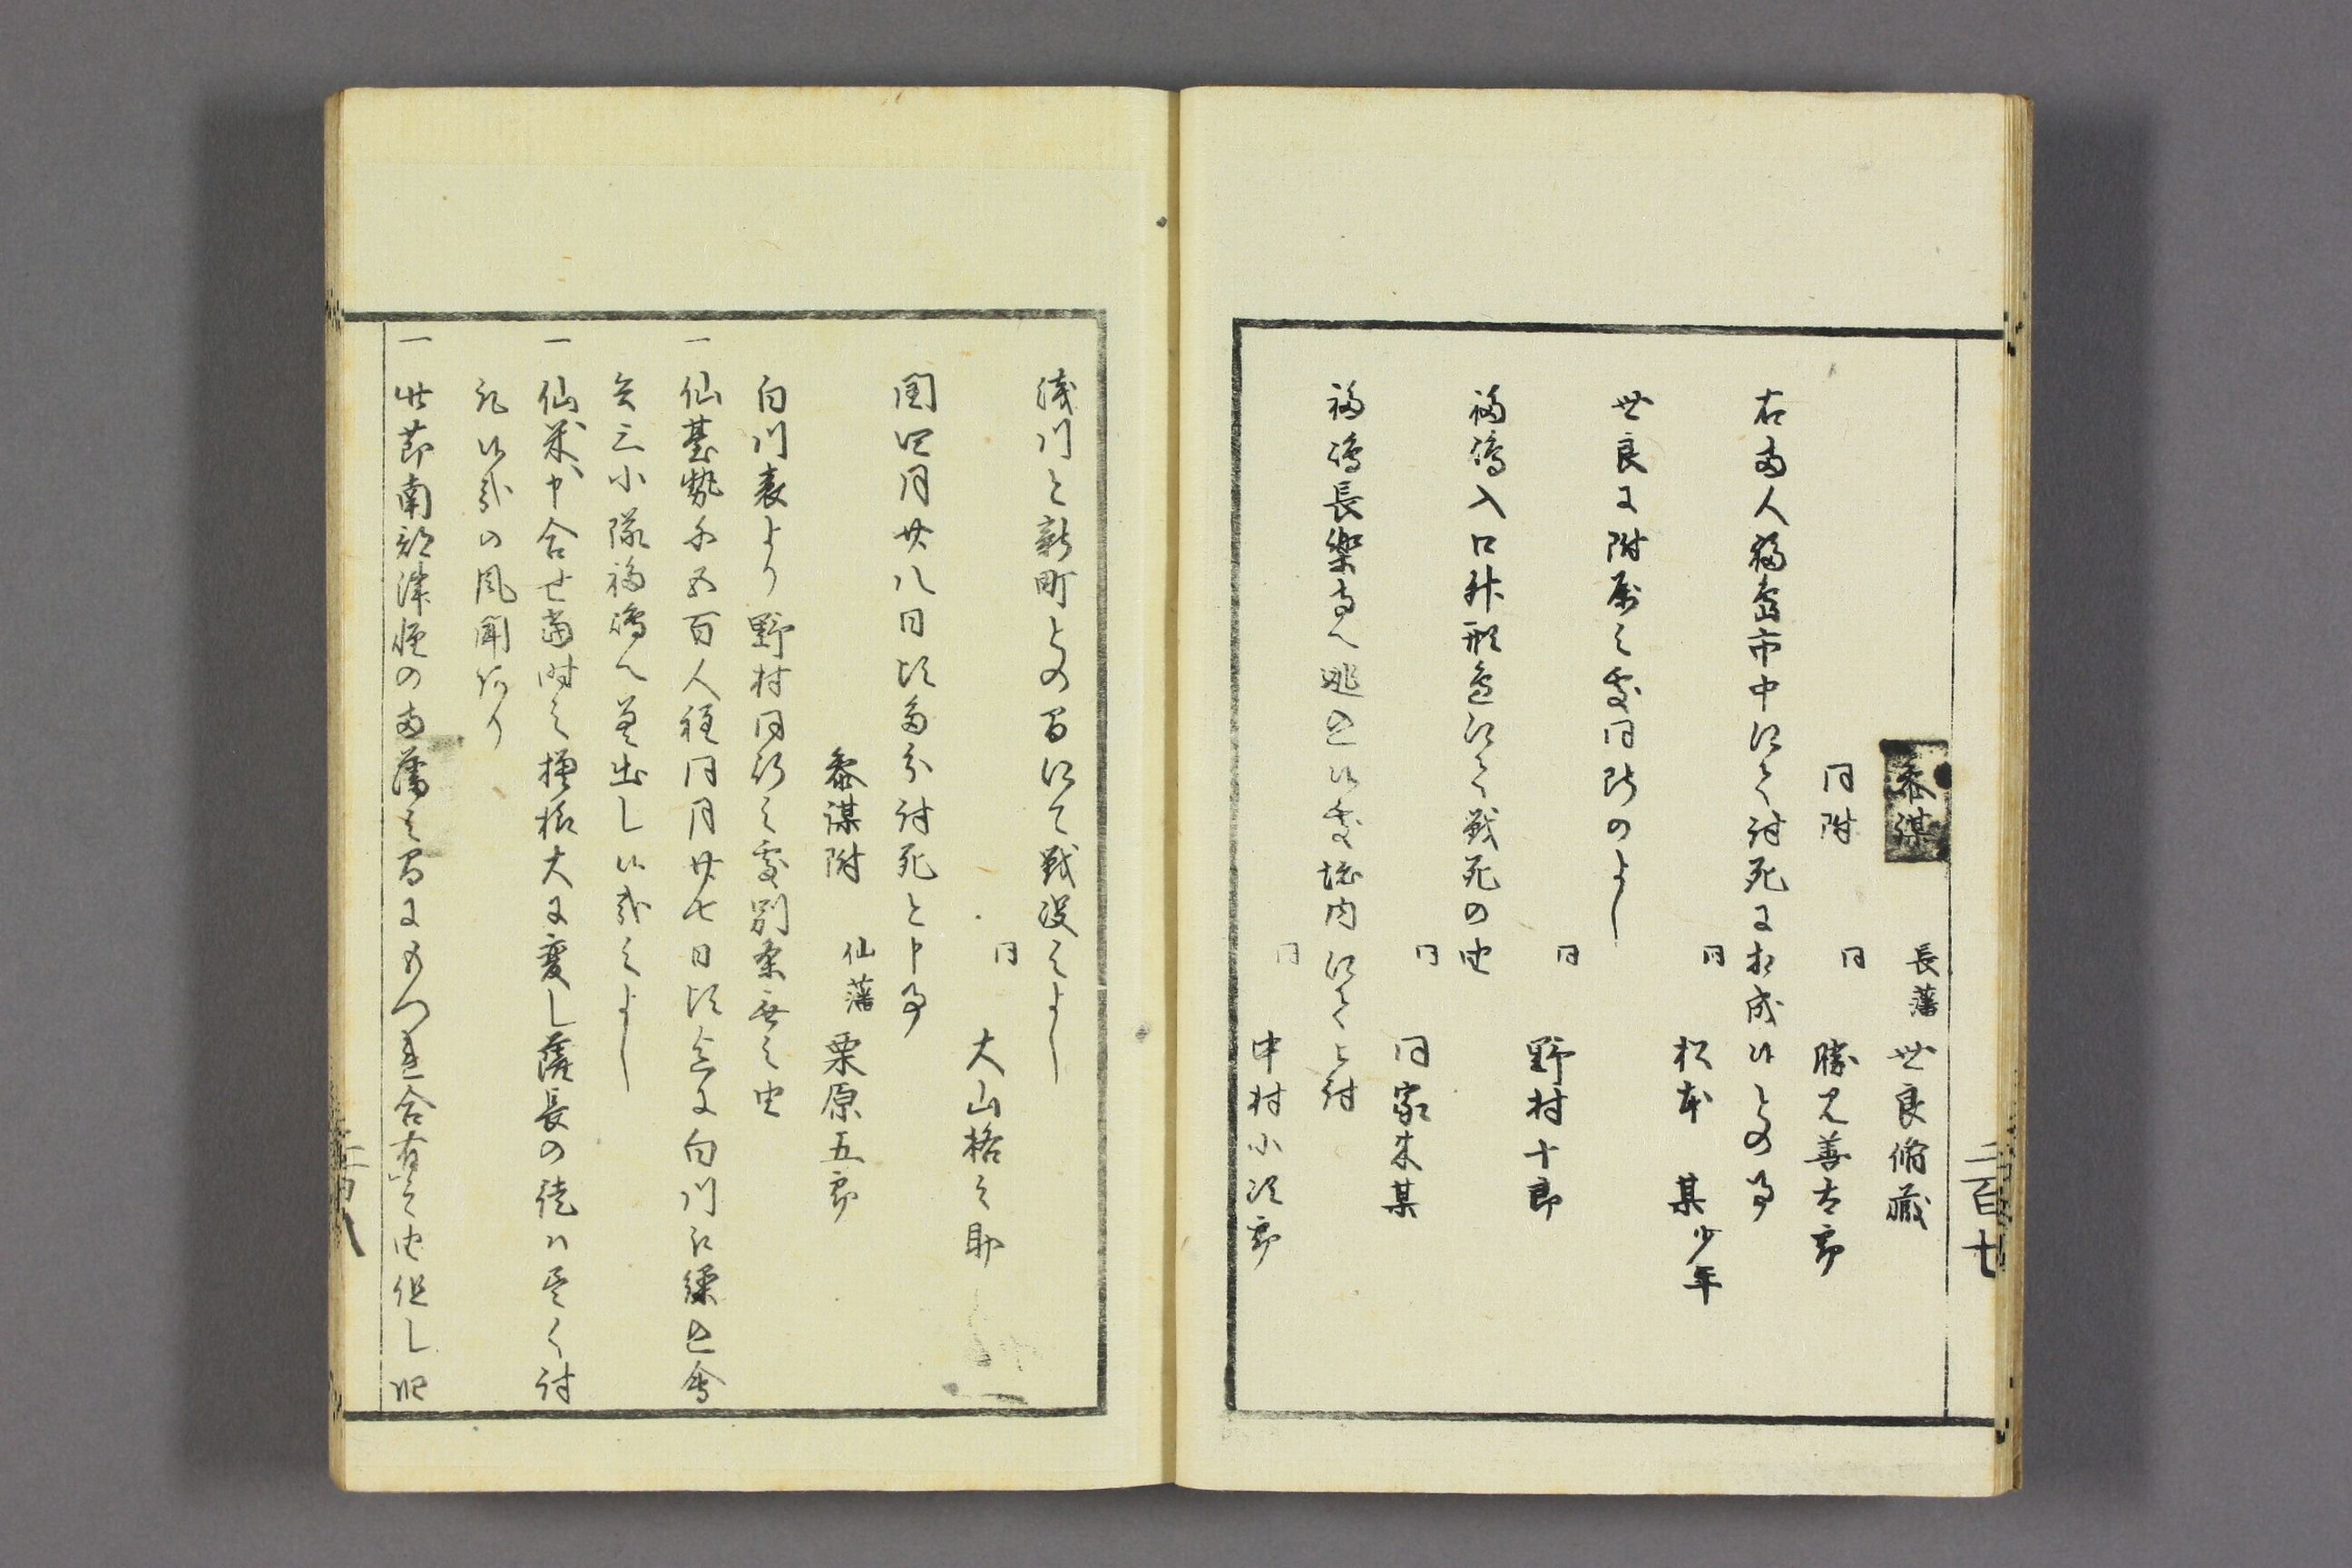 二百七
参謀 長藩 世良脩蔵
同附 同 勝見善太郎
右両人福島市中ニて討死ニ相成候との事
同 松本 某少年
世良ニ附属之處同断のよし
同 野村十郎
福嶋入口升形邊ニて戦死の由
同 同家来某
福嶋長樂寺へ逃込候處境内ニて被討
同 中村小次郎
浅川と新町との間にて戦没之よし
同 大山格之助
閏四月廿八日頃多分討死と申事
参謀附 仙藩 栗原五郎
白川表より野村同行之處別条無之由
一仙臺勢千五百人程同月廿七日頃迄ニ白川江繰込會
兵三小隊福嶋へ差出し候哉之よし
一仙米申合せ当時之模様大ニ変し薩長の徒ハ悉く討
取候哉の風聞有り
一此節南部津軽の両藩之間ニもつれ合有之由但し昨